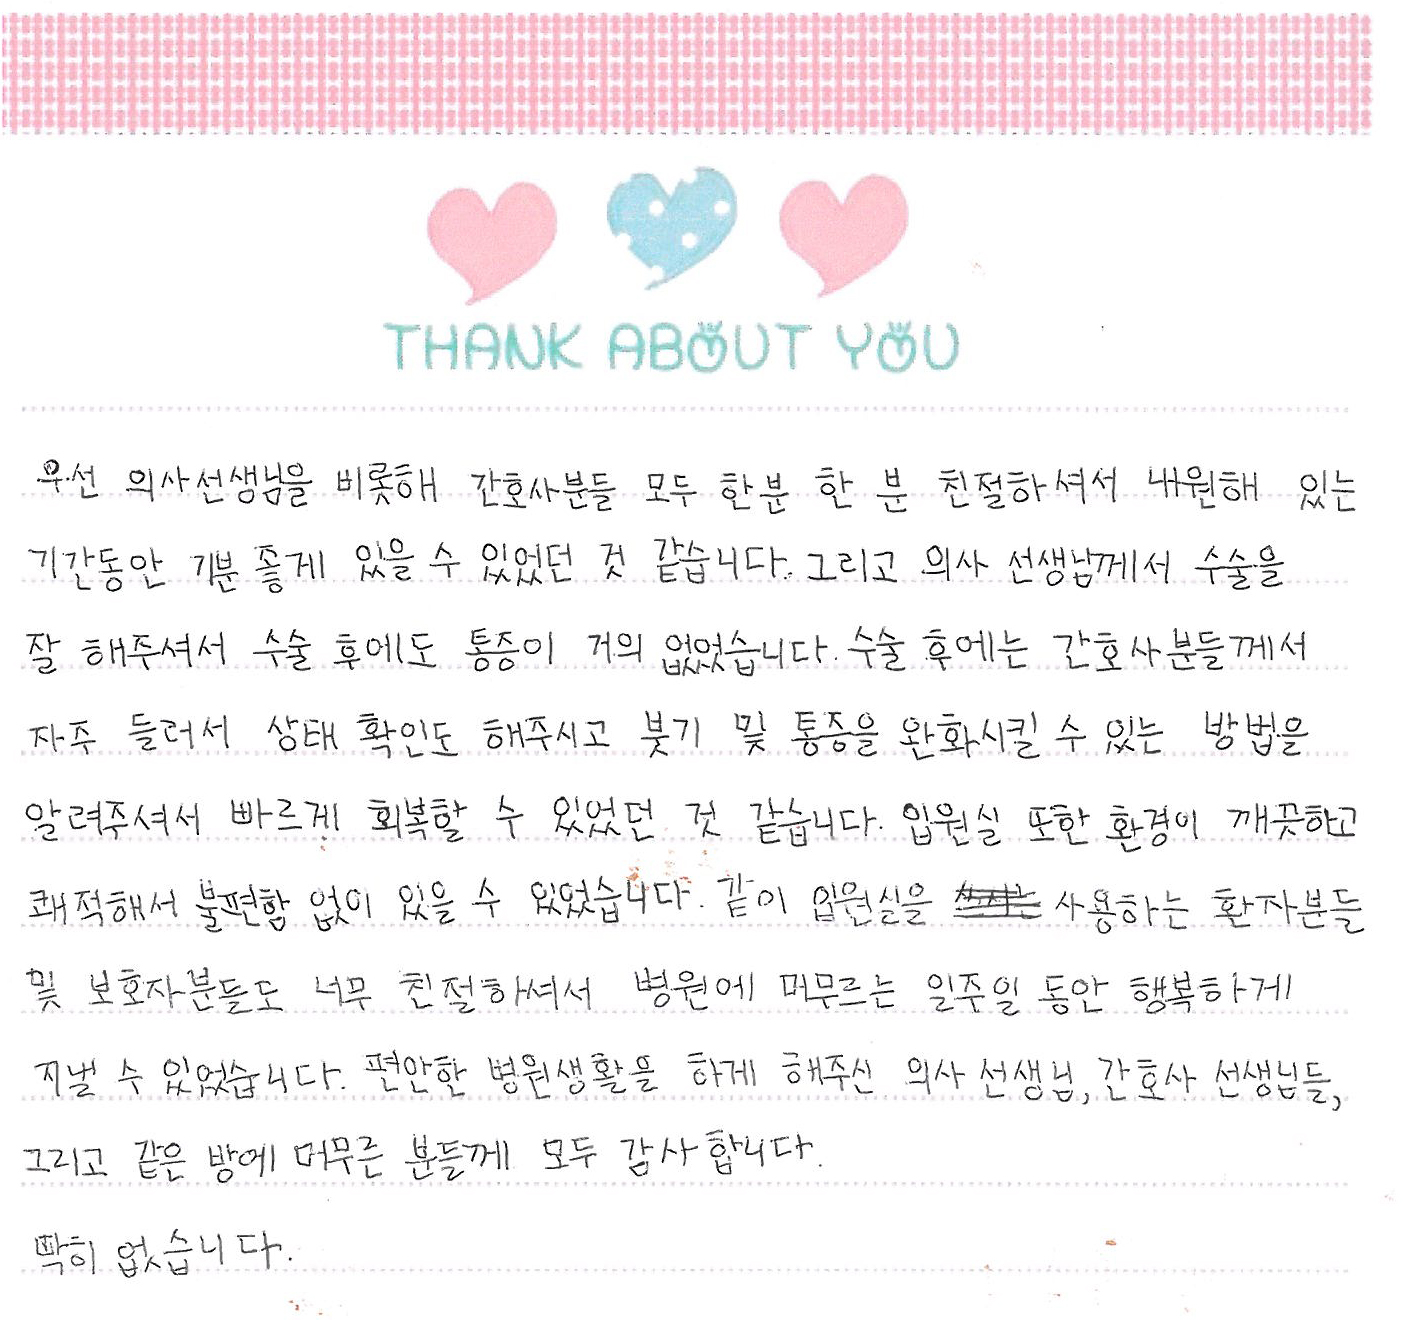 THANK ABOUT YOU
우선 의사선생님을 비롯해 간호사분들 모두 한분 한 분 친절하셔서 내원해 있는
기간동안 기분 좋게 있을 수 있었던 것 같습니다. 그리고 의사 선생님께서 수술을
잘 해주셔서 수술 후에도 통증이 거의 없었습니다. 수술 후에는 간호사분들께서
자주 들러서 상태 확인도 해주시고 붓기 및 통증을 완화시킬 수 있는 방법을
알려주셔서 빠르게 회복할 수 있었던 것 같습니다. 입원실 또한 환경이 깨끗하고
쾌적해서 불편함 없이 있을 수 있었습니다. 같이 입원실을 사용하는 환자분들
및 보호자분들도 너무 친절하셔서 병원에 머무르는 일주일 동안 행복하게
지낼 수 있었습니다. 편안한 병원생활을 하게 해주신 의사 선생님, 간호사 선생님들,
그리고 같은 방에 머무른 분들께 모두 감사합니다.
딱히 없습니다.